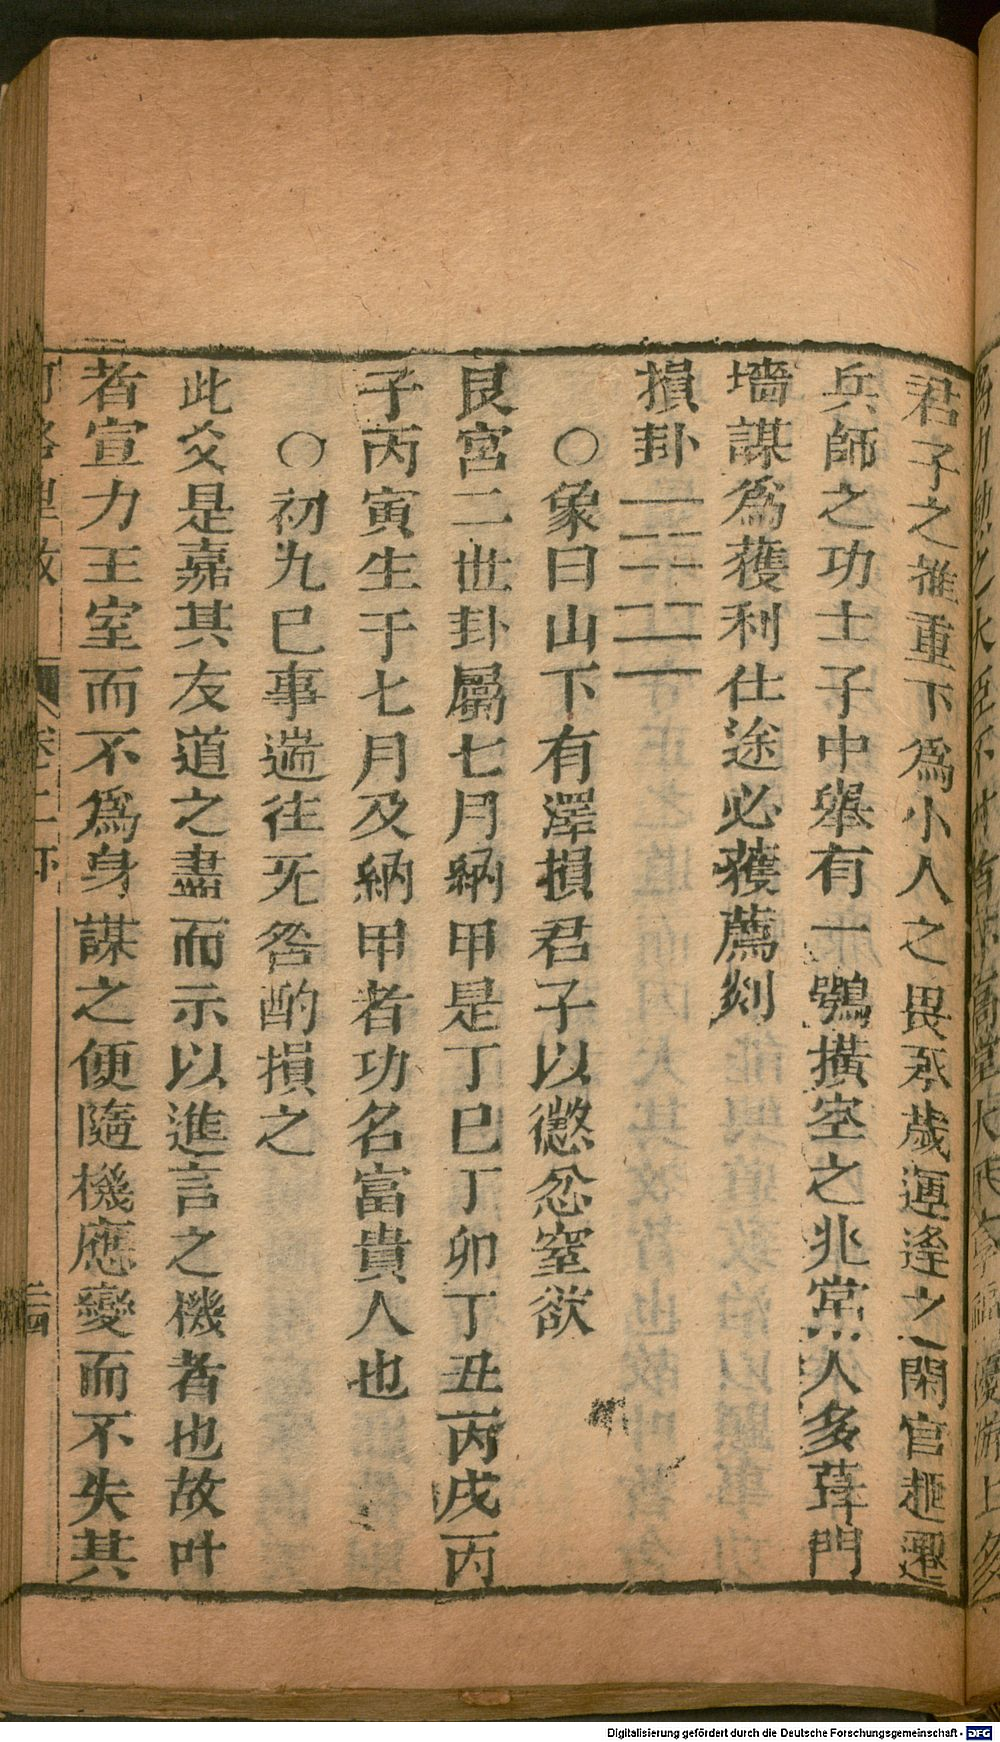 君子之推重下為小人之畏承歲運逢之閑官趣遷
兵師之功士子中舉有一鶚橫空之兆常人多葺門
墻謀為獲利仕途必獲薦剡
損卦
○象曰山下有澤損君子以懲忿窒欲
艮宮二世卦屬七月納甲是丁巳丁卯丁丑丙戌丙
子丙寅生于七月及納甲者功名富貴人也
○初九巳事遄往旡咎酌損之
此爻是嘉其友道之盡而示以進言之機者也故叶
者宣力王室而不為身謀之便隨機應變而不失其
卷二下
二四
Digitalisierung gefördert durch die Deutsche Forschungsgemeinschaft - DFG